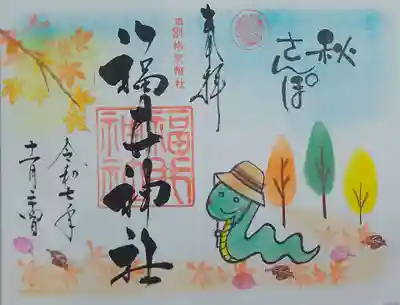 秋
さんぽ
奉拝
旧別格官幣社
福井神社
福井
神社
令和七年
十一月